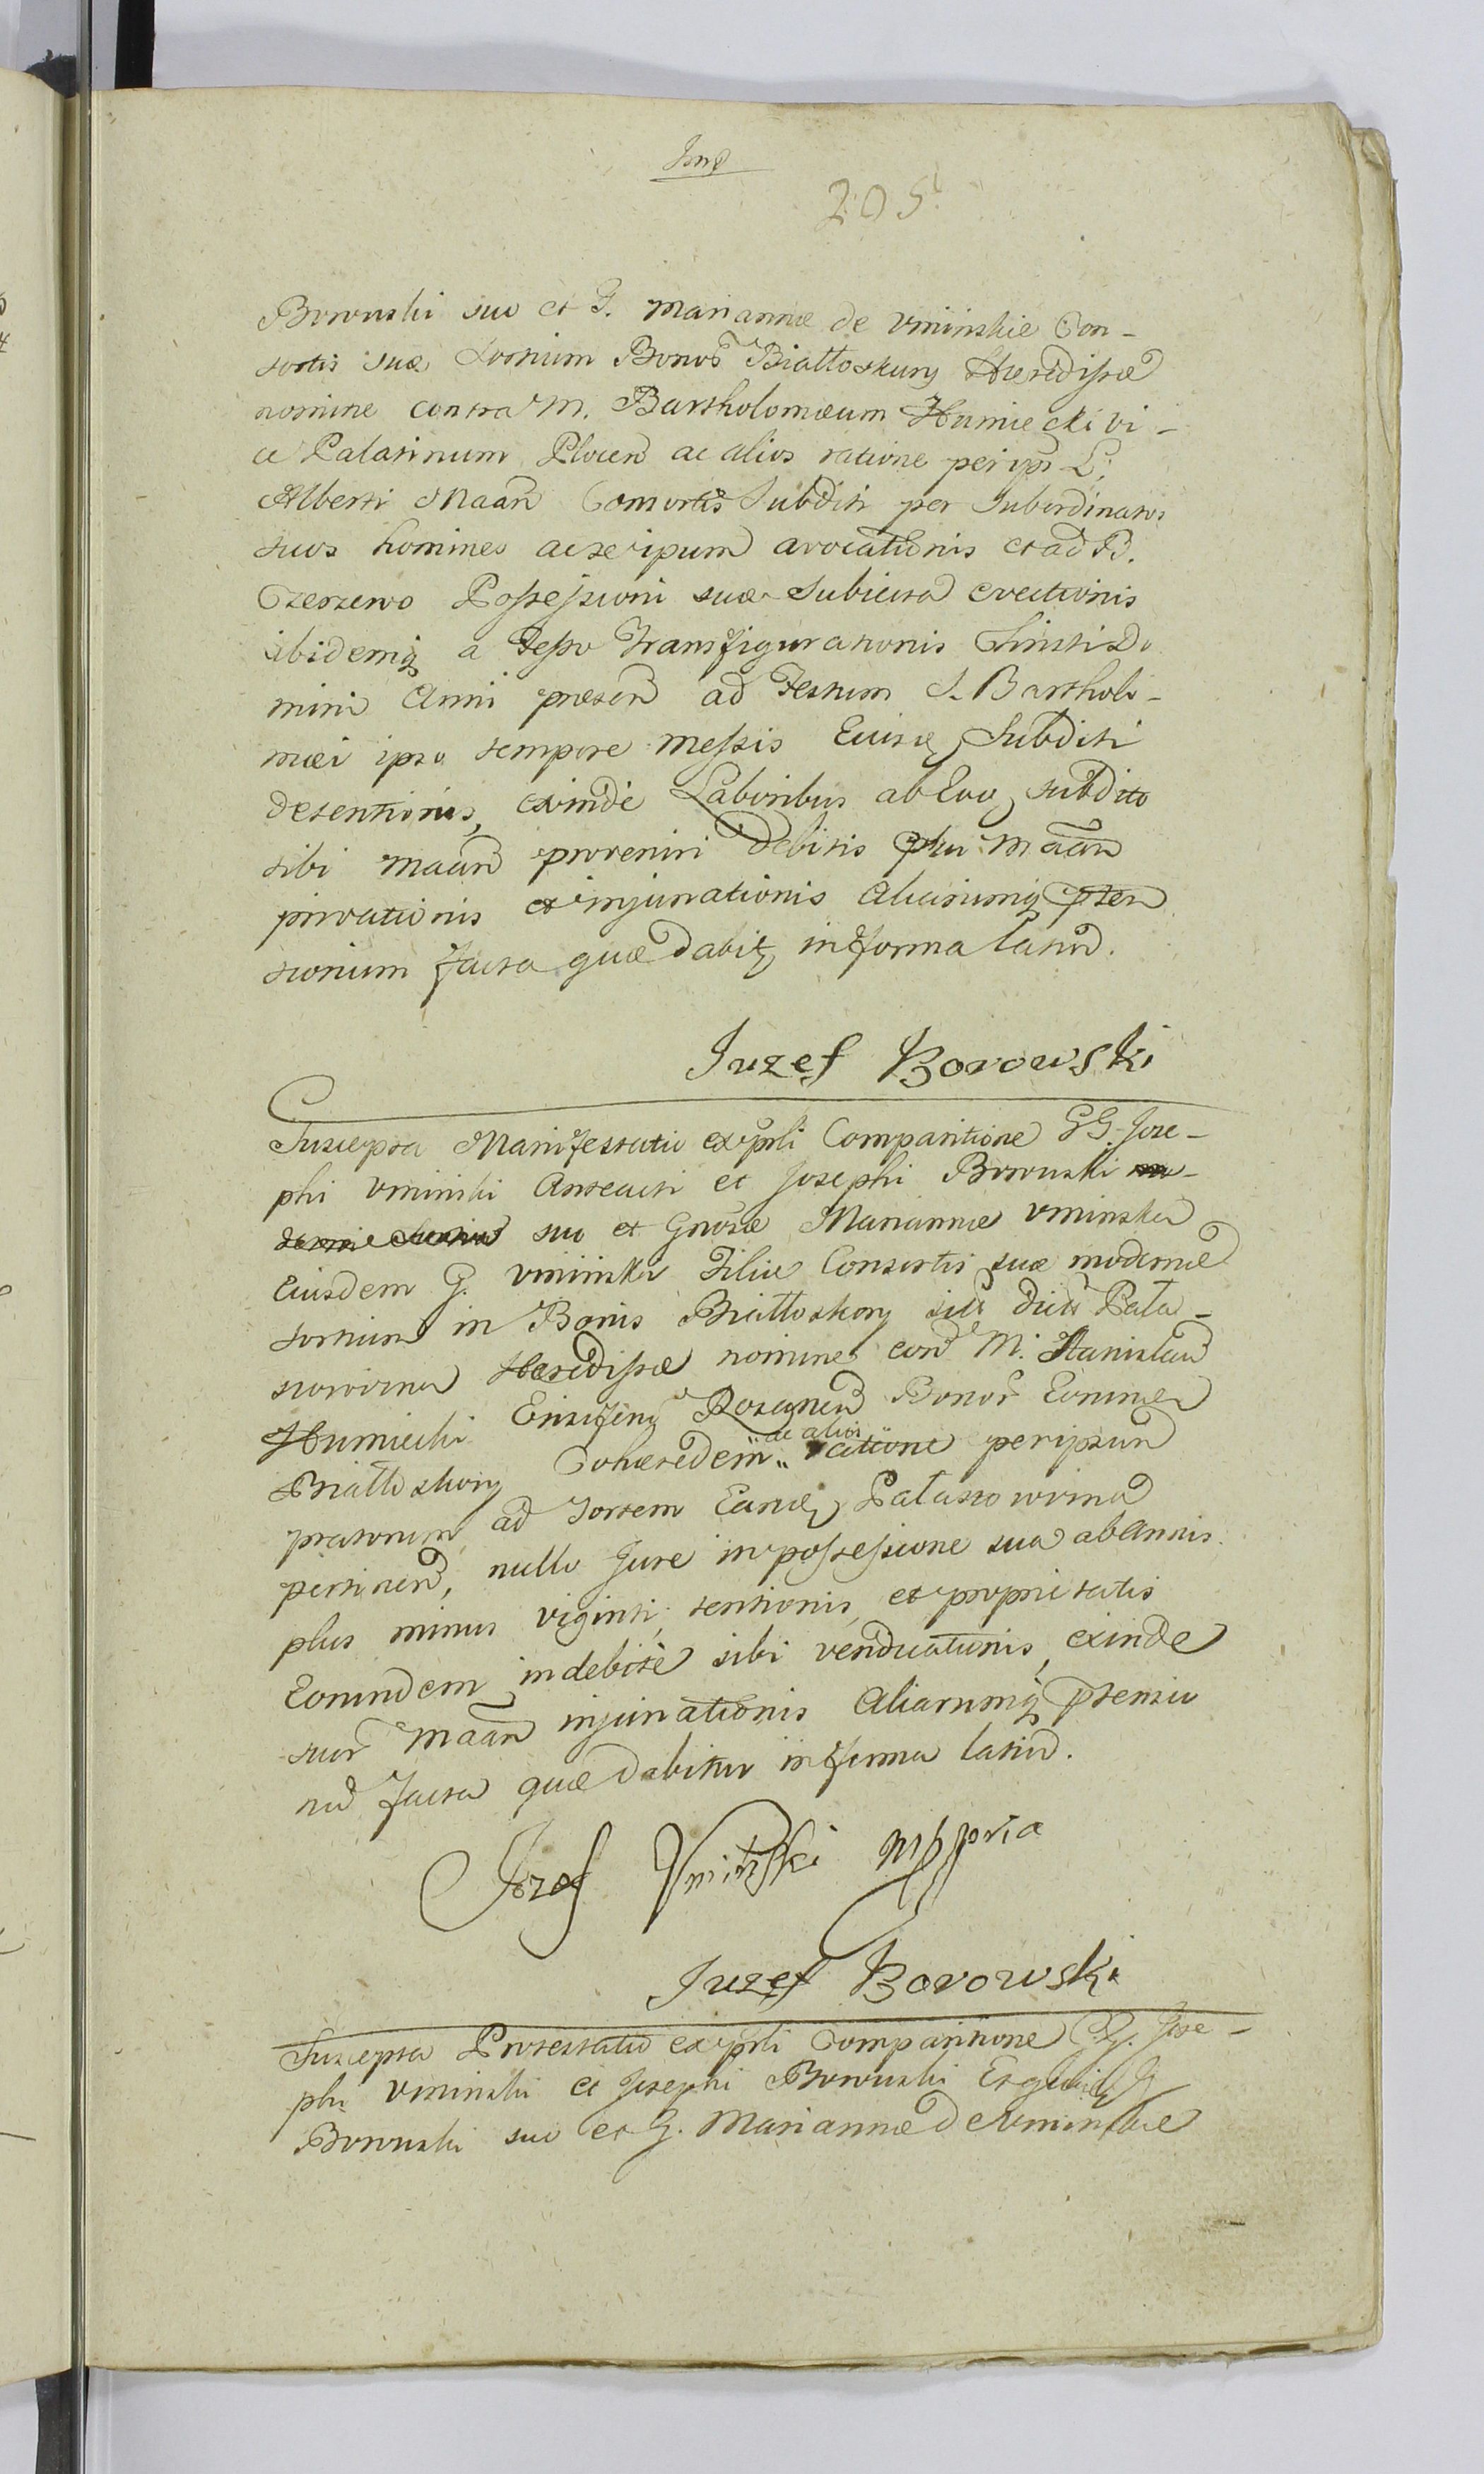 205
Borowski suo et G. Mariannæ de Uminskie Con-
sortis suæ Sortium Bonor Białłoskury Hæredissæ
nomine contra M. Bartholomæum Humiecki Vi-
ce Palatinum Plocen ac alios ratione per ips L.
Alberti Maan Consortis Subditi per Subordinatos
suos homines ac se ipsum avocationis et ad B.
Czerzewo Possessioni suæ Subiecta evectionis
ibidemq a Festo Transfigurationis Christi Do
mini Anni præsen ad Festum S. Bartholo-
mæi ipso tempore Messis Eiusq Subditi
detentionis, exinde Laboribus ab Eoq subdito
sibi Maan provenire debitis Maan
privationis et injuriationis Aliarumq Præten
sionum facta quæ dabit in forma latiu.
Juzef Borowski
Suscepta Manifestatio ex psli Comparitione GG. Jose-
phi Uminski Anteacti et Josephi Borowski mo-
suo et Gnosæ Mariannæ Uminska
Eiusdem G. Uminski Filiæ Consortis suæ modernæ
Sortium in Bonis Białłoskory sic dict Pała-
szowizna Hæredissæ nomine con M. Stanislau
Humiecki Ensiferu Rozanen Bonor Eorunde
Białłoskory Cohæredem "ac alios" ratione per ipsum
pratorum ad Sortem Eandq Pałaszowizna
pertinen, nullo Jure in possessione sua ab Annis
plus minus viginti, tentionis, et proprietatis
Eorumdem indebite sibi vendicationis, exinde
suor Maan injuriationis Aliarumq Prætensio
nu facta quæ dabitur in forma latiu.
Jozef Uminski mppria
Juzef Borowski
Suscepta Protestatio ex psli Comparitione GG. Jose-
phi Uminski et Josephi Borowski G
Borowski suo et G. Mariannæ de Uminskie